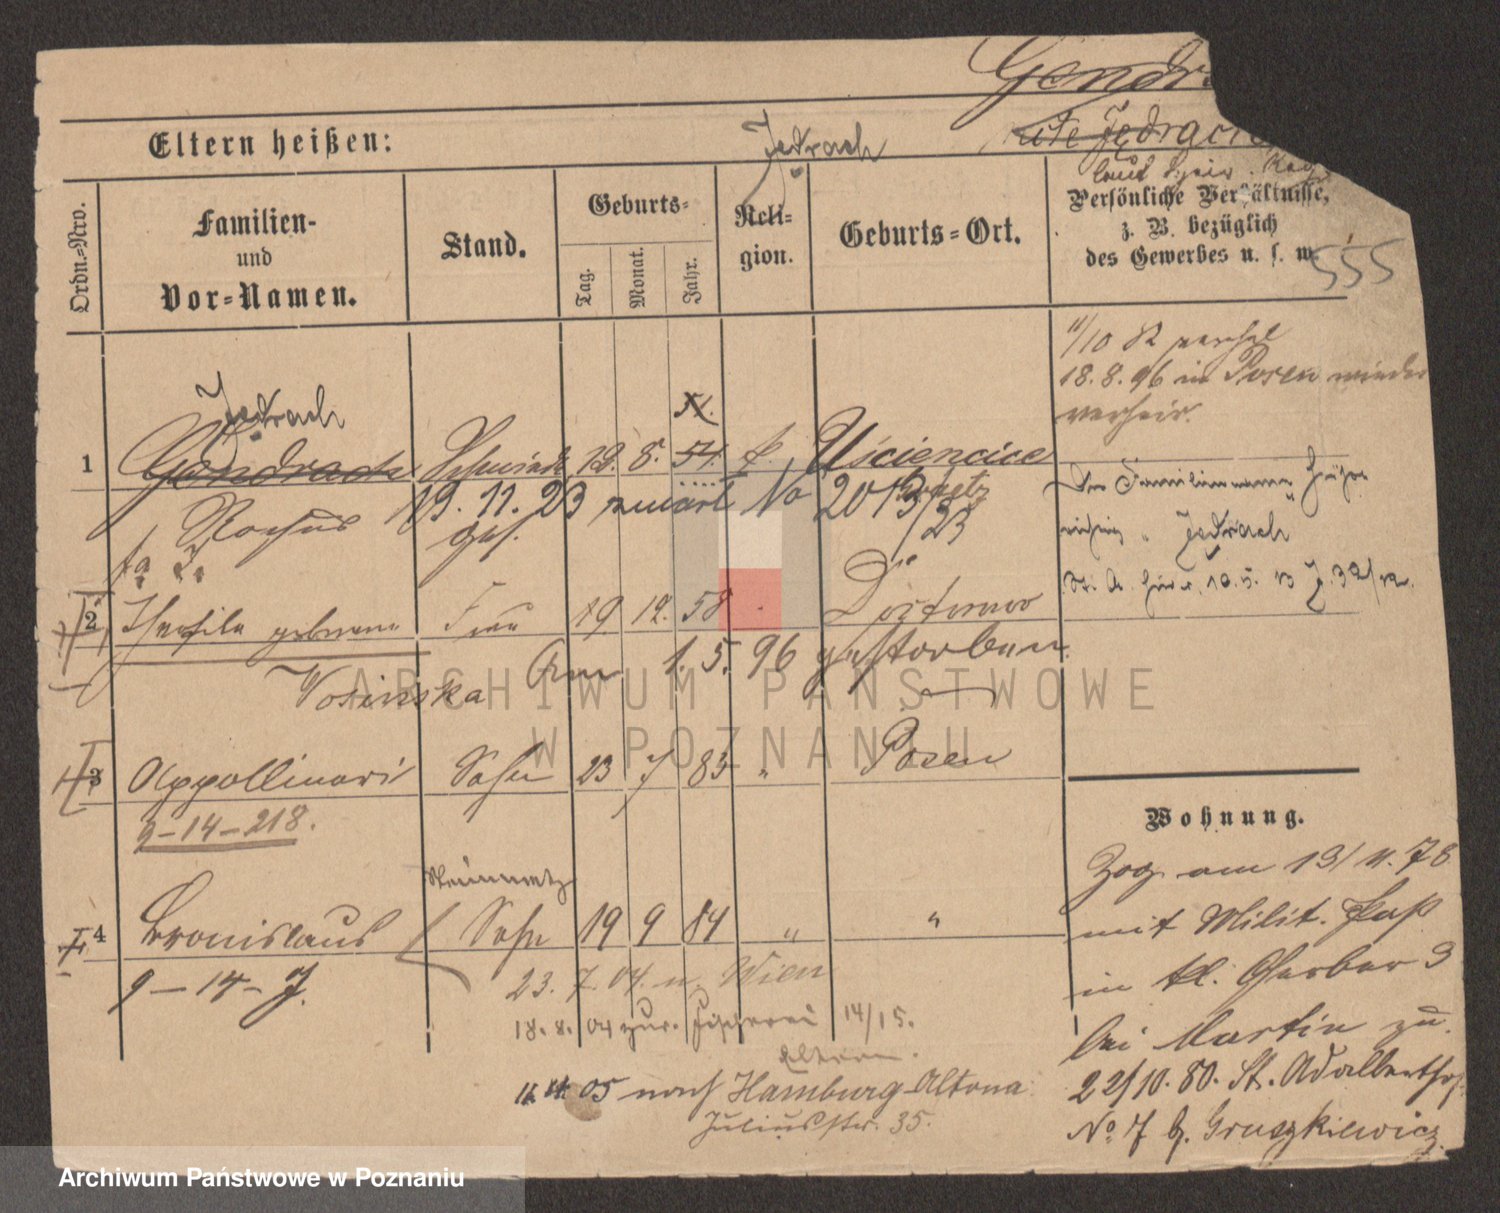 Gendr
Jedrach
Eltern heißen:
Ordn.-Nro.
Familien-
und
Vor-Namen.
Stand.
Geburts-
Tag.
Monat.
Jahr.
Reli-
gion.
Geburts-Ort.
Persönliche Verhältnisse,
z. B. bezüglich
des Gewerbes u. s. w.
555
11/10 82
18.8.96 in Posen wieder
verheir.
Jedrach
51.
1 Gendrach 19. 8. 54. k. Uściencice
19. 11. 23 zmarł No 2013/23
Rochus
Der Familienname
richtig „Jedrach
2 Theofila geborene Frau 19 12. 58
Wosinska
Am 1. 5. 96 gestorben
3 Appollinari Sohn 23 7 83 " Posen
9-14-218.
Wohnung.
Zog am 13/11.78
mit Milit. Paß
in kl. Gerber 3
bei Martin zu.
22/10.80. St. Adalbertst
No 7 b. Gruszkiewicz
Steinmetz
4 Bronislaus Sohn 19 9 84 " "
9-14-7.
23. 7. 04. n. Wien
18. 8. 04 zur. 14/15.
Eltern.
05 nach Hamburg-Altona
Juliusstr. 35.
ARCHIWUM PAŃSTWOWE
W POZNANIU
Archiwum Państwowe w Poznaniu